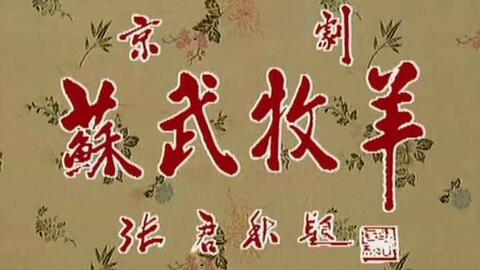 京劇
蘇武牧羊
张君秋题